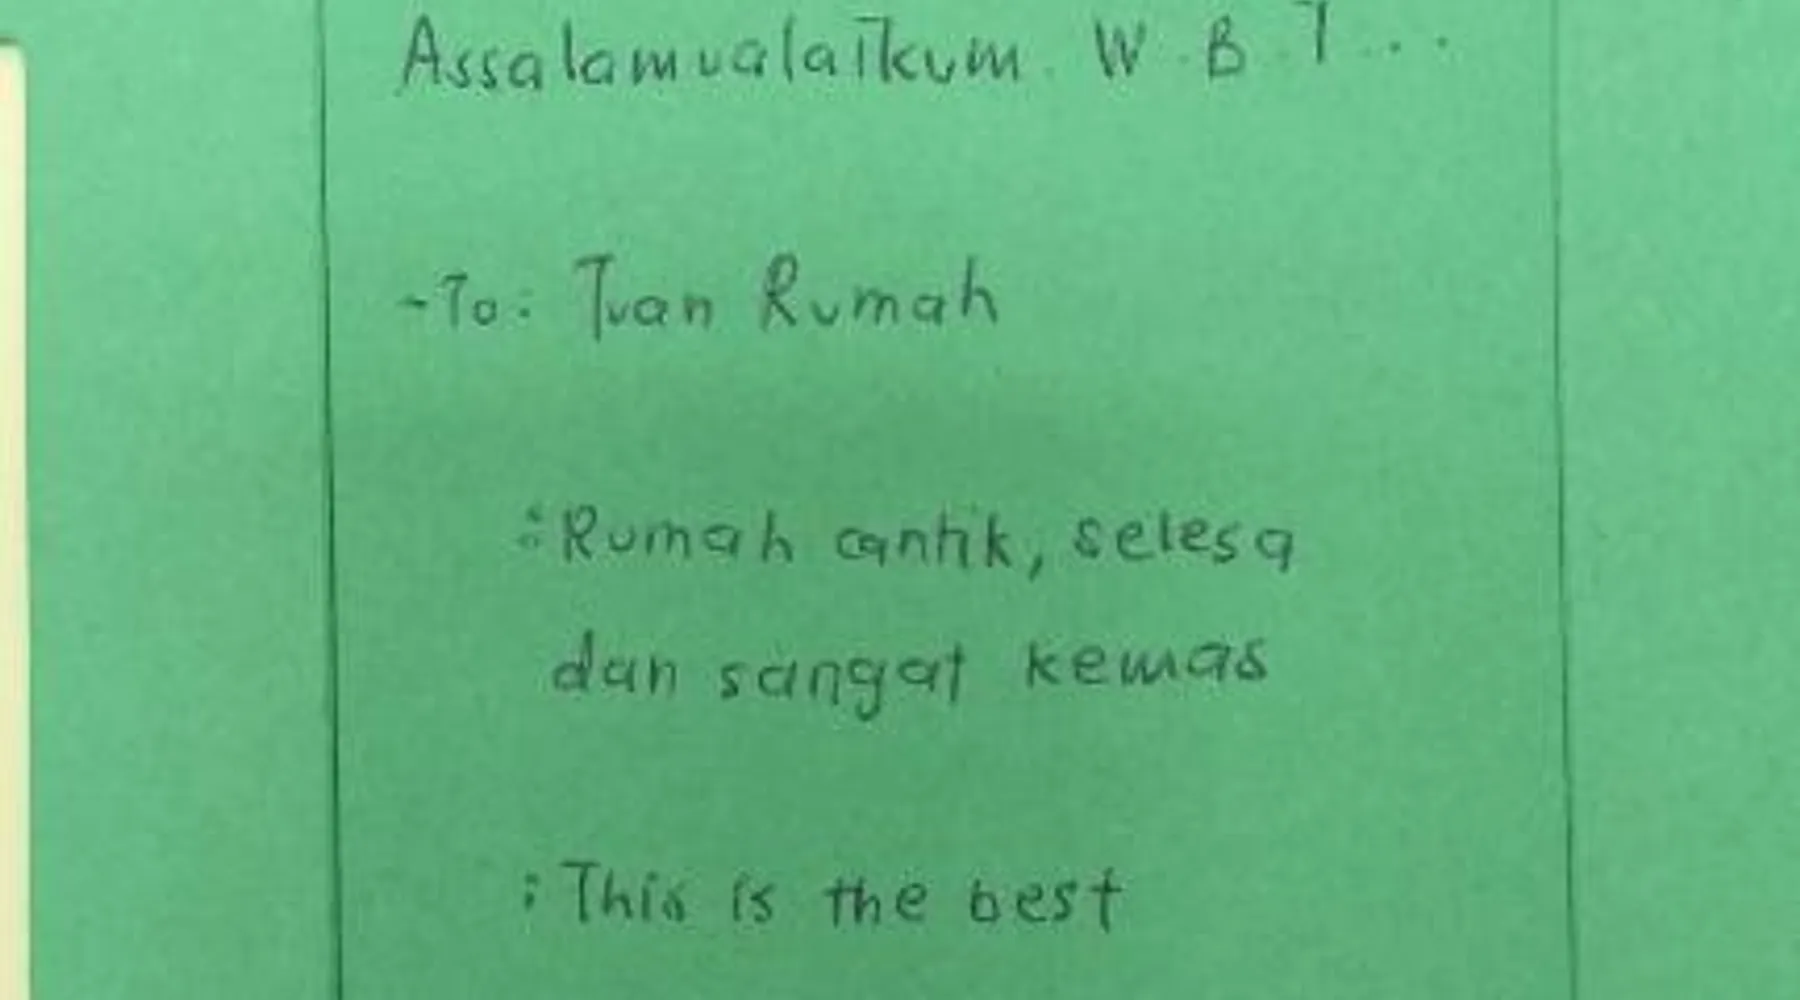 Assalamualaikum. W.B.T...
-To: Tuan Rumah
:Rumah cantik, selesa
dan sangat kemas
:This is the best